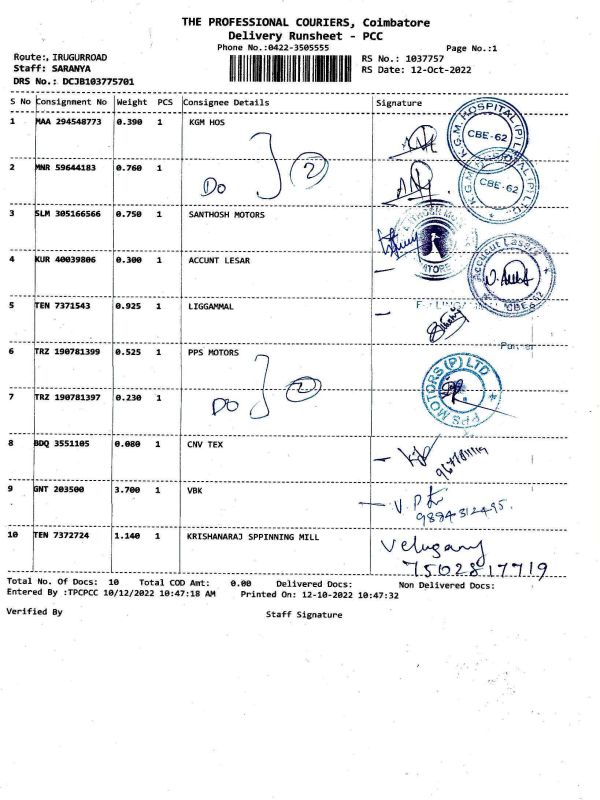 THE PROFESSIONAL COURIERS, Coimbatore
Delivery Runsheet - PCC
Phone No.:0422-3505555
Page No.:1
Route:, IRUGURROAD
Staff: SARANYA
DRS No.: DCJB103775701
RS No.: 1037757
RS Date: 12-Oct-2022
S No Consignment No Weight PCS Consignee Details Signature
1 MAA 294548773 0.390 1 KGM HOS
K.G.M. HOSPITAL (P) L
CBE-62
2 MNR 59644183 0.760 1
Do 2
CBE-62
3 SLM 305166566 0.750 1 SANTHOSH MOTORS
4 KUR 40039806 0.300 1 ACCUNT LESAR
Accucut Lasers
CBE-62
5 TEN 7371543 0.925 1 LIGGAMMAL
6 TRZ 190781399 0.525 1 PPS MOTORS
PPS MOTORS (P) LTD
7 TRZ 190781397 0.230 1
Do 2
8 BDQ 3551105 0.080 1 CNV TEX
9 GNT 203500 3.700 1 VBK
9884312495.
10 TEN 7372724 1.140 1 KRISHANARAJ SPPINNING MILL
7502817719
Total No. Of Docs: 10 Total COD Amt: 0.00 Delivered Docs: Non Delivered Docs:
Entered By :TPCPCC 10/12/2022 10:47:18 AM Printed On: 12-10-2022 10:47:32
Verified By Staff Signature